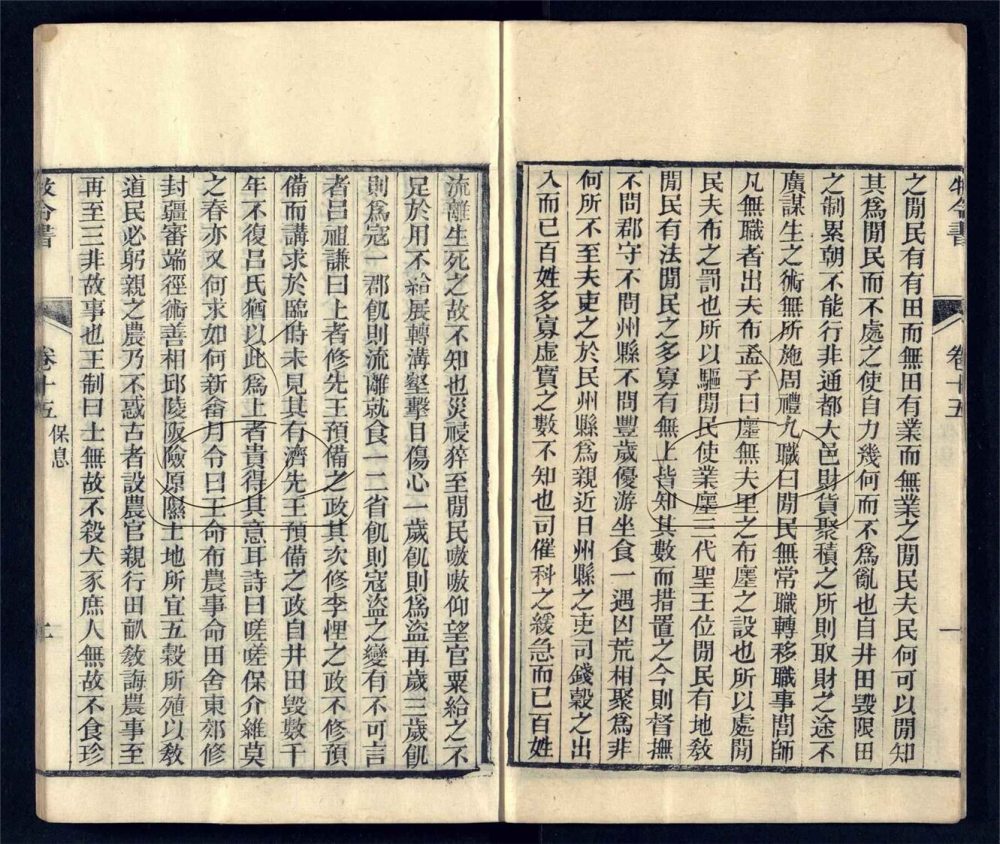 牧令書
卷十五
一
之閒民有有田而無田有業而無業之閒民夫民何可以閒知
其爲閒民而不處之使自力幾何而不爲亂也自井田毀限田
之制累朝不能行非通都大邑財貨聚積之所則取財之途不
廣謀生之術無所施周禮九職曰閒民無常職轉移職事閭師
凡無職者出夫布孟子曰廛無夫里之布廛之設也所以處閒
民夫布之罰也所以驅閒民使業廛三代聖王位閒民有地敎
閒民有法閒民之多寡有無上皆知其數而措置之今則督撫
不問郡守不問州縣不問豐歲優游坐食一遇凶荒相聚爲非
何所不至夫吏之於民州縣爲親近日州縣之吏司錢穀之出
入而已百姓多寡虛實之數不知也司催科之緩急而已百姓
流離生死之故不知也災祲猝至閒民嗷嗷仰望官粟給之不
足於用不給展轉溝壑擊目傷心一歲飢則爲盜再歲三歲飢
則爲寇一郡飢則流離就食一二省飢則寇盜之變有不可言
者呂祖謙曰上者修先王預備之政其次修李悝之政不修預
備而講求於臨時未見其有濟先王預備之政自井田毀數千
年不復呂氏猶以此爲上者貴得其意耳詩曰嗟嗟保介維莫
之春亦又何求如何新畬月令曰王命布農事命田舍東郊修
封疆審端徑術善相邱陵阪險原隰土地所宜五穀所殖以敎
道民必躬親之農乃不惑古者設農官親行田畝敎誨農事至
再至三非故事也王制曰士無故不殺犬豕庶人無故不食珍
牧令書
卷十五
保息
二